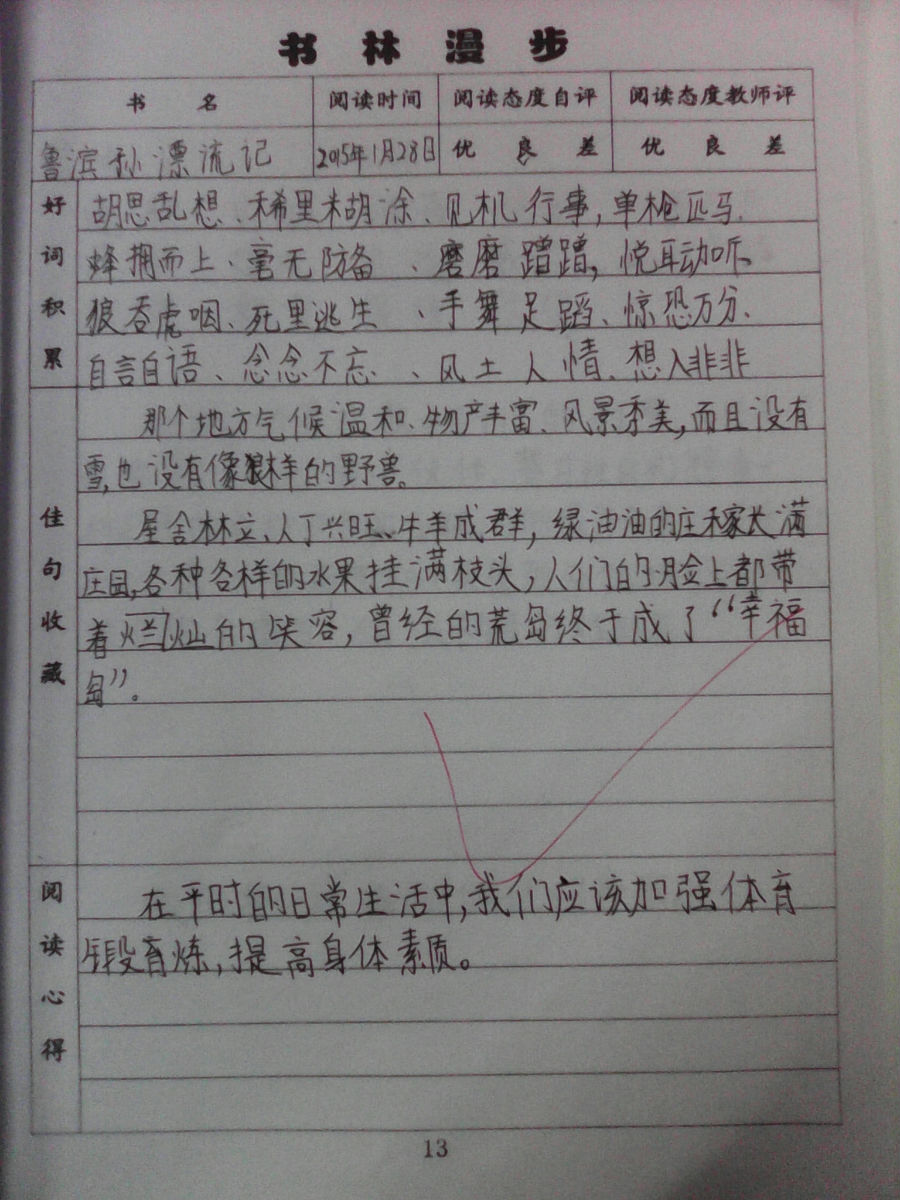 书林漫步
书名 阅读时间 阅读态度自评 阅读态度教师评
鲁滨孙漂流记 2015年1月28日 优 良 差 优 良 差
好词积累
胡思乱想、稀里糊涂、见机行事,单枪匹马、
蜂拥而上、毫无防备、磨磨蹭蹭,悦耳动听、
狼吞虎咽、死里逃生、手舞足蹈、惊恐万分、
自言自语、念念不忘、风土人情、想入非非
佳句收藏
那个地方气候温和、物产丰富、风景秀美,而且没有
雪,也没有像狼样的野兽。
屋舍林立、人丁兴旺、牛羊成群,绿油油的庄稼长满
庄园,各种各样的水果挂满枝头,人们的脸上都带
着灿的笑容,曾经的荒岛终于成了“幸福
岛”。
阅读心得
在平时的日常生活中,我们应该加强体育
锻育炼,提高身体素质。
13